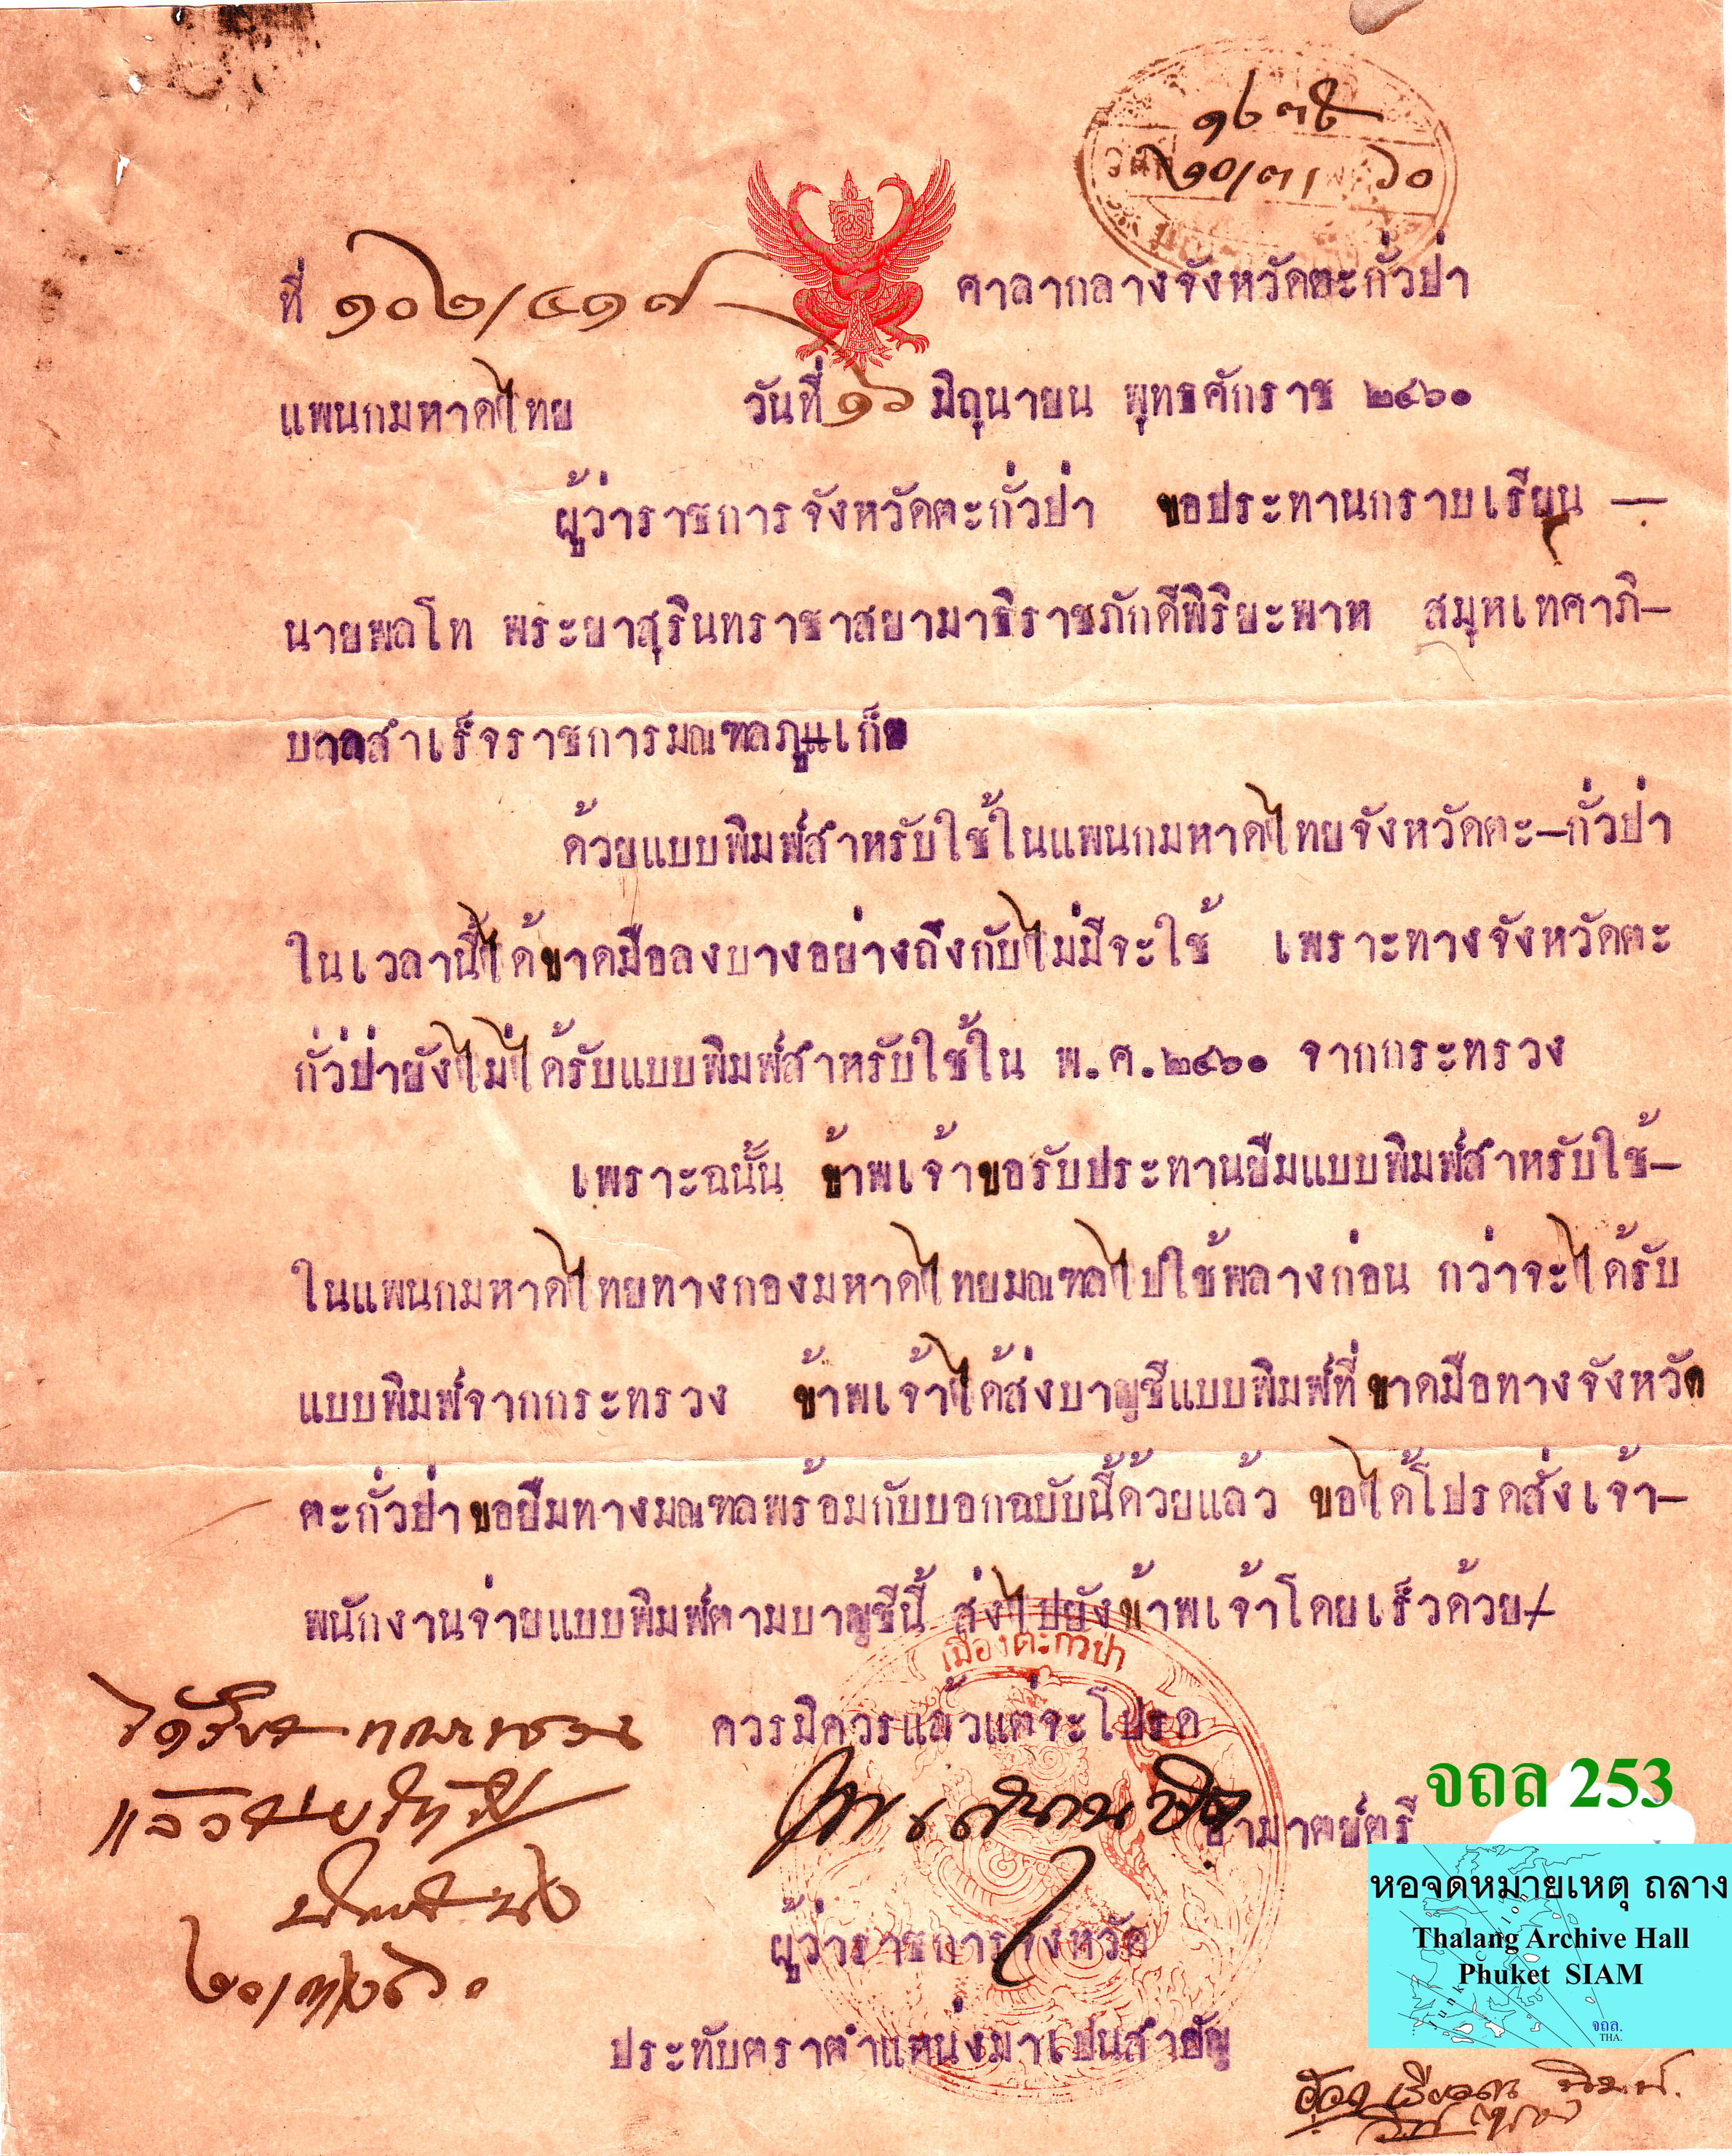 ๑๒๓๕
วันที่ ๒๐/๓/๖๐
ที่ ๑๐๒/๔๑๗ ศาลากลางจังหวัดตะกั่วป่า
แพนกมหาดไทย วันที่ ๑๖ มิถุนายน พุทธศักราช ๒๔๖๐
ผู้ว่าราชการจังหวัดตะกั่วป่า ขอประทานกราบเรียน —
นายพลโท พระยาสุรินทราชาสยามาธิราชภักดีพิริยะพาห สมุหเทศาภิ—
บาลสำเร็จราชการมณฑลภูเก็ต
ด้วยแบบพิมพ์สำหรับใช้ในแพนกมหาดไทยจังหวัดตะ—กั่วป่า
ในเวลานี้ได้ขาดมือลงบางอย่างถึงกับไม่มีจะใช้ เพราะทางจังหวัดตะ
กั่วป่ายังไม่ได้รับแบบพิมพ์สำหรับใช้ใน พ.ศ.๒๔๖๐ จากกระทรวง
เพราะฉนั้น ข้าพเจ้าขอรับประทานยืมแบบพิมพ์สำหรับใช้—
ในแพนกมหาดไทยทางกองมหาดไทยมณฑลไปใช้พลางก่อน กว่าจะได้รับ
แบบพิมพ์จากกระทรวง ข้าพเจ้าได้ส่งบาญชีแบบพิมพ์ที่ขาดมือทางจังหวัด
ตะกั่วป่าขอยืมทางมณฑลพร้อมกับบอกฉบับนี้ด้วยแล้ว ขอได้โปรดสั่งเจ้า—
พนักงานจ่ายแบบพิมพ์ตามบาญชีนี้ ส่งไปยังข้าพเจ้าโดยเร็วด้วย
เมืองตะกั่วป่า
ควรมิควรแล้วแต่จะโปรด
อำมาตย์ตรี
ผู้ว่าราชการจังหวัด
ประทับตราตำแหน่งมาเปนสำคัญ
จถล 253
หอจดหมายเหตุ ถลาง
Thalang Archive Hall
Phuket SIAM
จถล.
THA.